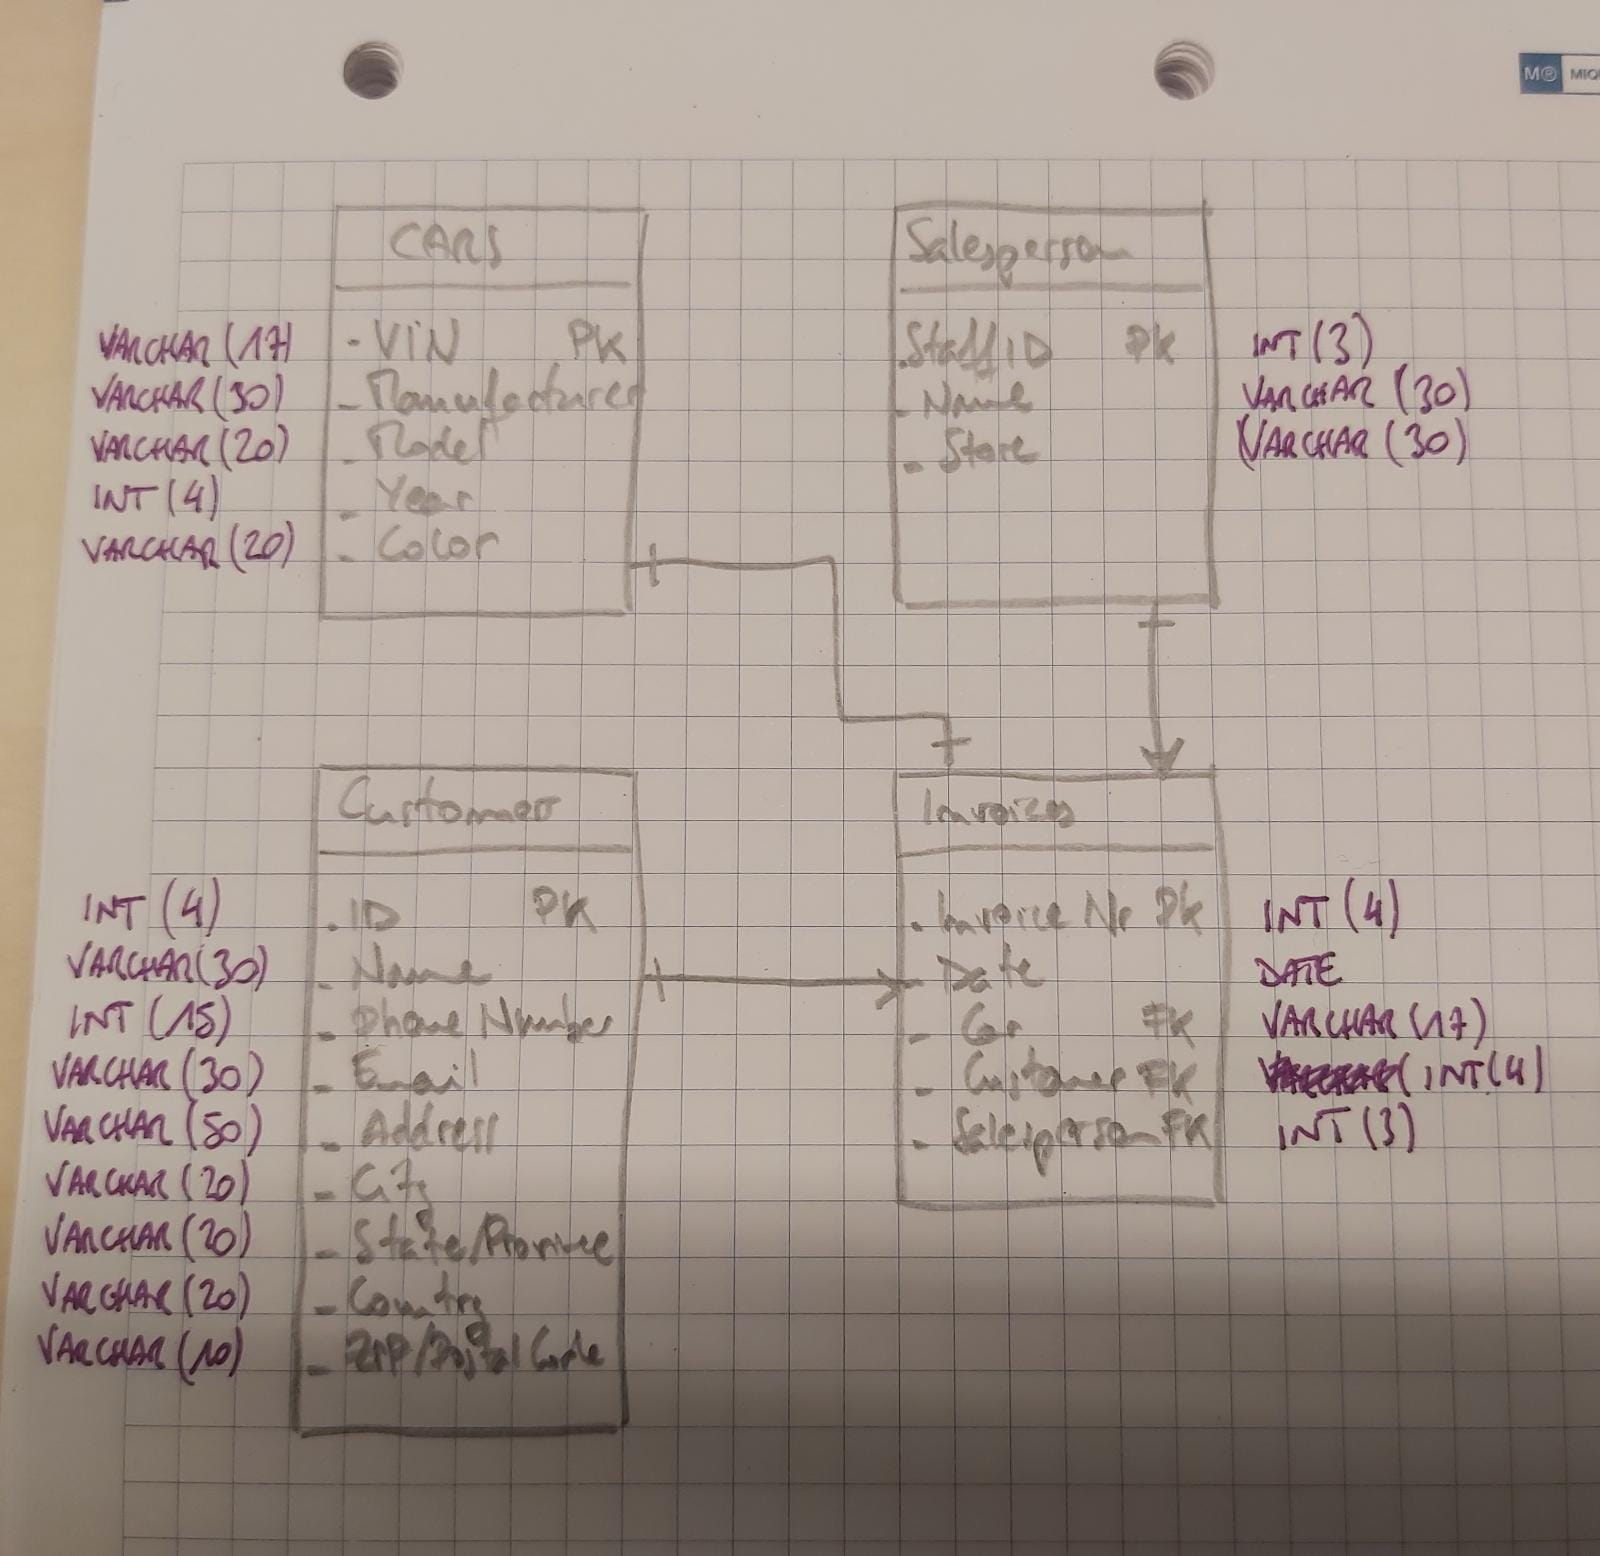 M® MIQ
CARS
VARCHAR (17) - VIN PK
VARCHAR (30) - Manufacturer
VARCHAR (20) - Model
INT (4) - Year
VARCHAR (20) - Color
Salesperson
. Staff ID PK INT (3)
- Name VARCHAR (30)
- Store VARCHAR (30)
Customer
INT (4) . ID PK
VARCHAR (30) - Name
INT (15) - Phone Number
VARCHAR (30) - Email
VARCHAR (50) - Address
VARCHAR (20) - City
VARCHAR (20) - State/Province
VARCHAR (20) - Country
VARCHAR (10) - ZIP/Postal Code
Invoices
. Invoice Nr PK INT (4)
- Date DATE
- Car FK VARCHAR (17)
- Customer FK INT (4)
- Salesperson FK INT (3)